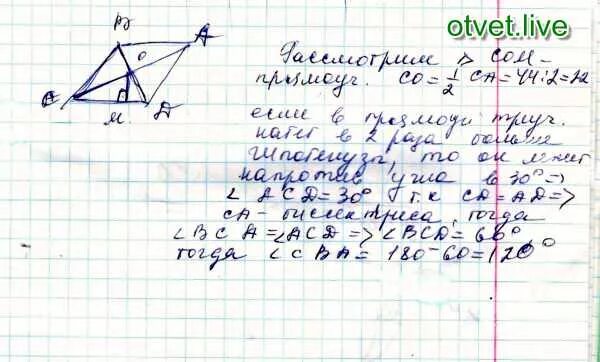 otvet.live
В
А
О
С
М
D
Рассмотрим △ СОМ -
прямоуг. СО = 1/2 СА = 44:2=22
если в прямоуг. треуг.
катет в 2 раза больше
гипотенузы, то он лежит
напротив угла в 30° =>
∠ ACD = 30° т.к CD = AD =>
CA - биссектриса, тогда
∠BCA = ∠ACD => ∠BCD = 60°
тогда ∠CBA = 180 - 60 = 120°